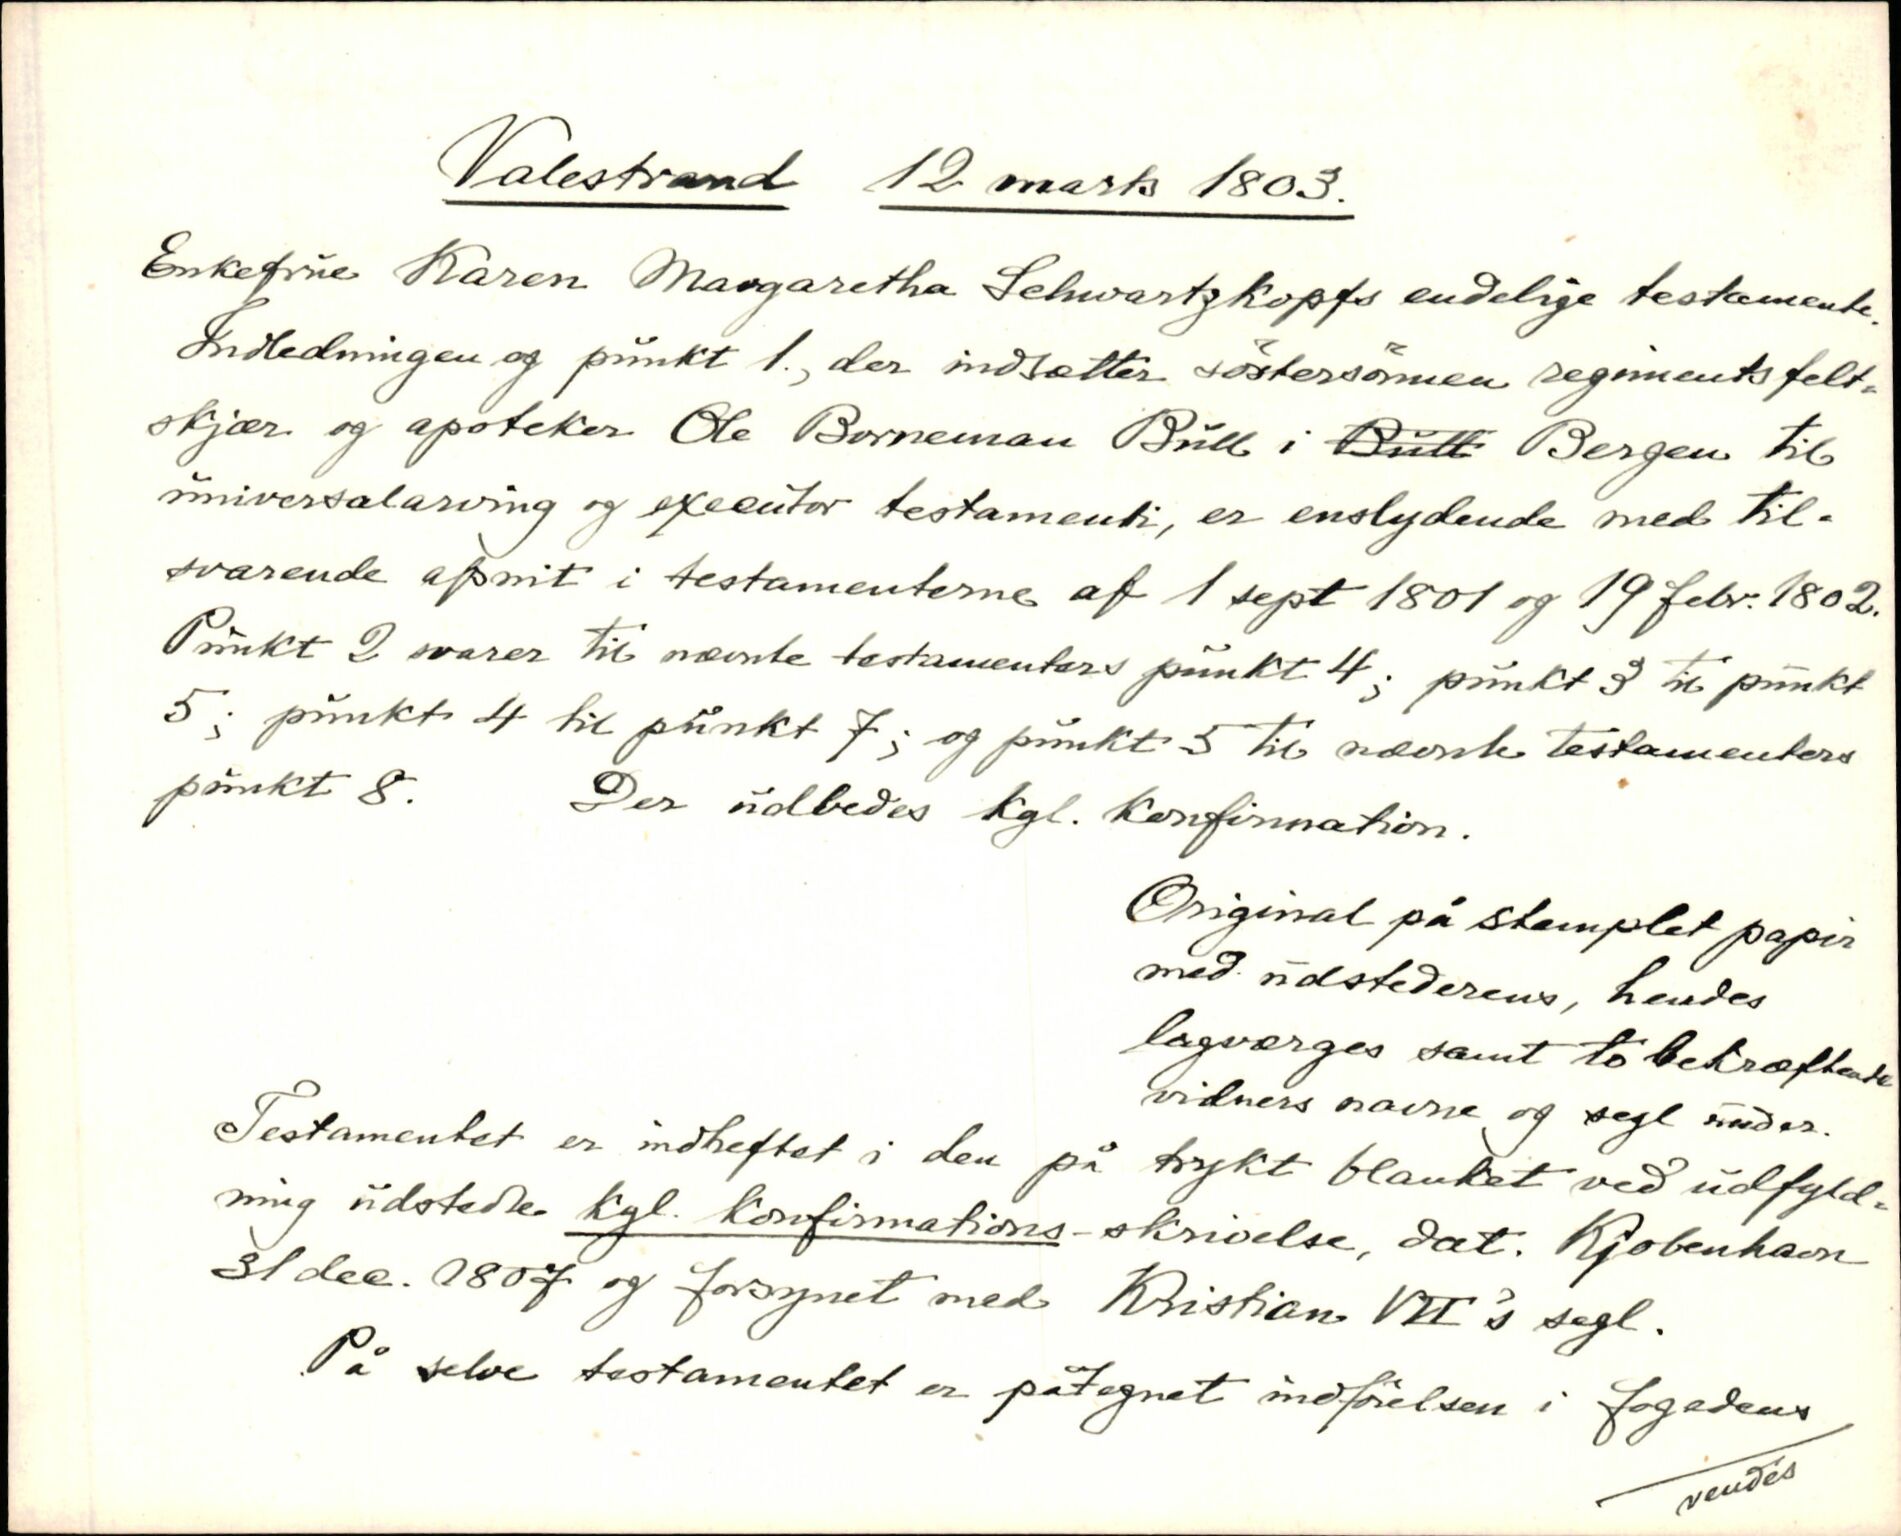 Valestrand 12 marts 1803.
Enkefrue Karen Margaretha Schwartzkopfs endelige testamente.
Indledningen og punkt 1., der indsætter söstersönnen regimentsfelt-
skjær og apoteker Ole Borneman Bull i ~~Bull~~ Bergen til
universalarving og executor testamenti, er enslydende med til-
svarende afsnit i testamenterne af 1 sept 1801 og 19 febr. 1802.
Punkt 2 svarer til nævnte testamenters punkt 4; punkt 3 til punkt
5; punkt 4 til punkt 7; og punkt 5 til nævnte testamenters
punkt 8. Der udbedes kgl. konfirmation.
Original på stemplet papir
med udstederens, hendes
lagværges samt to bekræftende
vidners navne og segl under.
Testamentet er indheftet i den på trykt blanket ved udfyld-
ning udstedte kgl. konfirmations-skrivelse, dat. Kjobenhavn
31 dec. 1807 og forsynet med Kristian VII's segl.
På selve testamentet er påtegnet indförelsen i fogedens
vendes